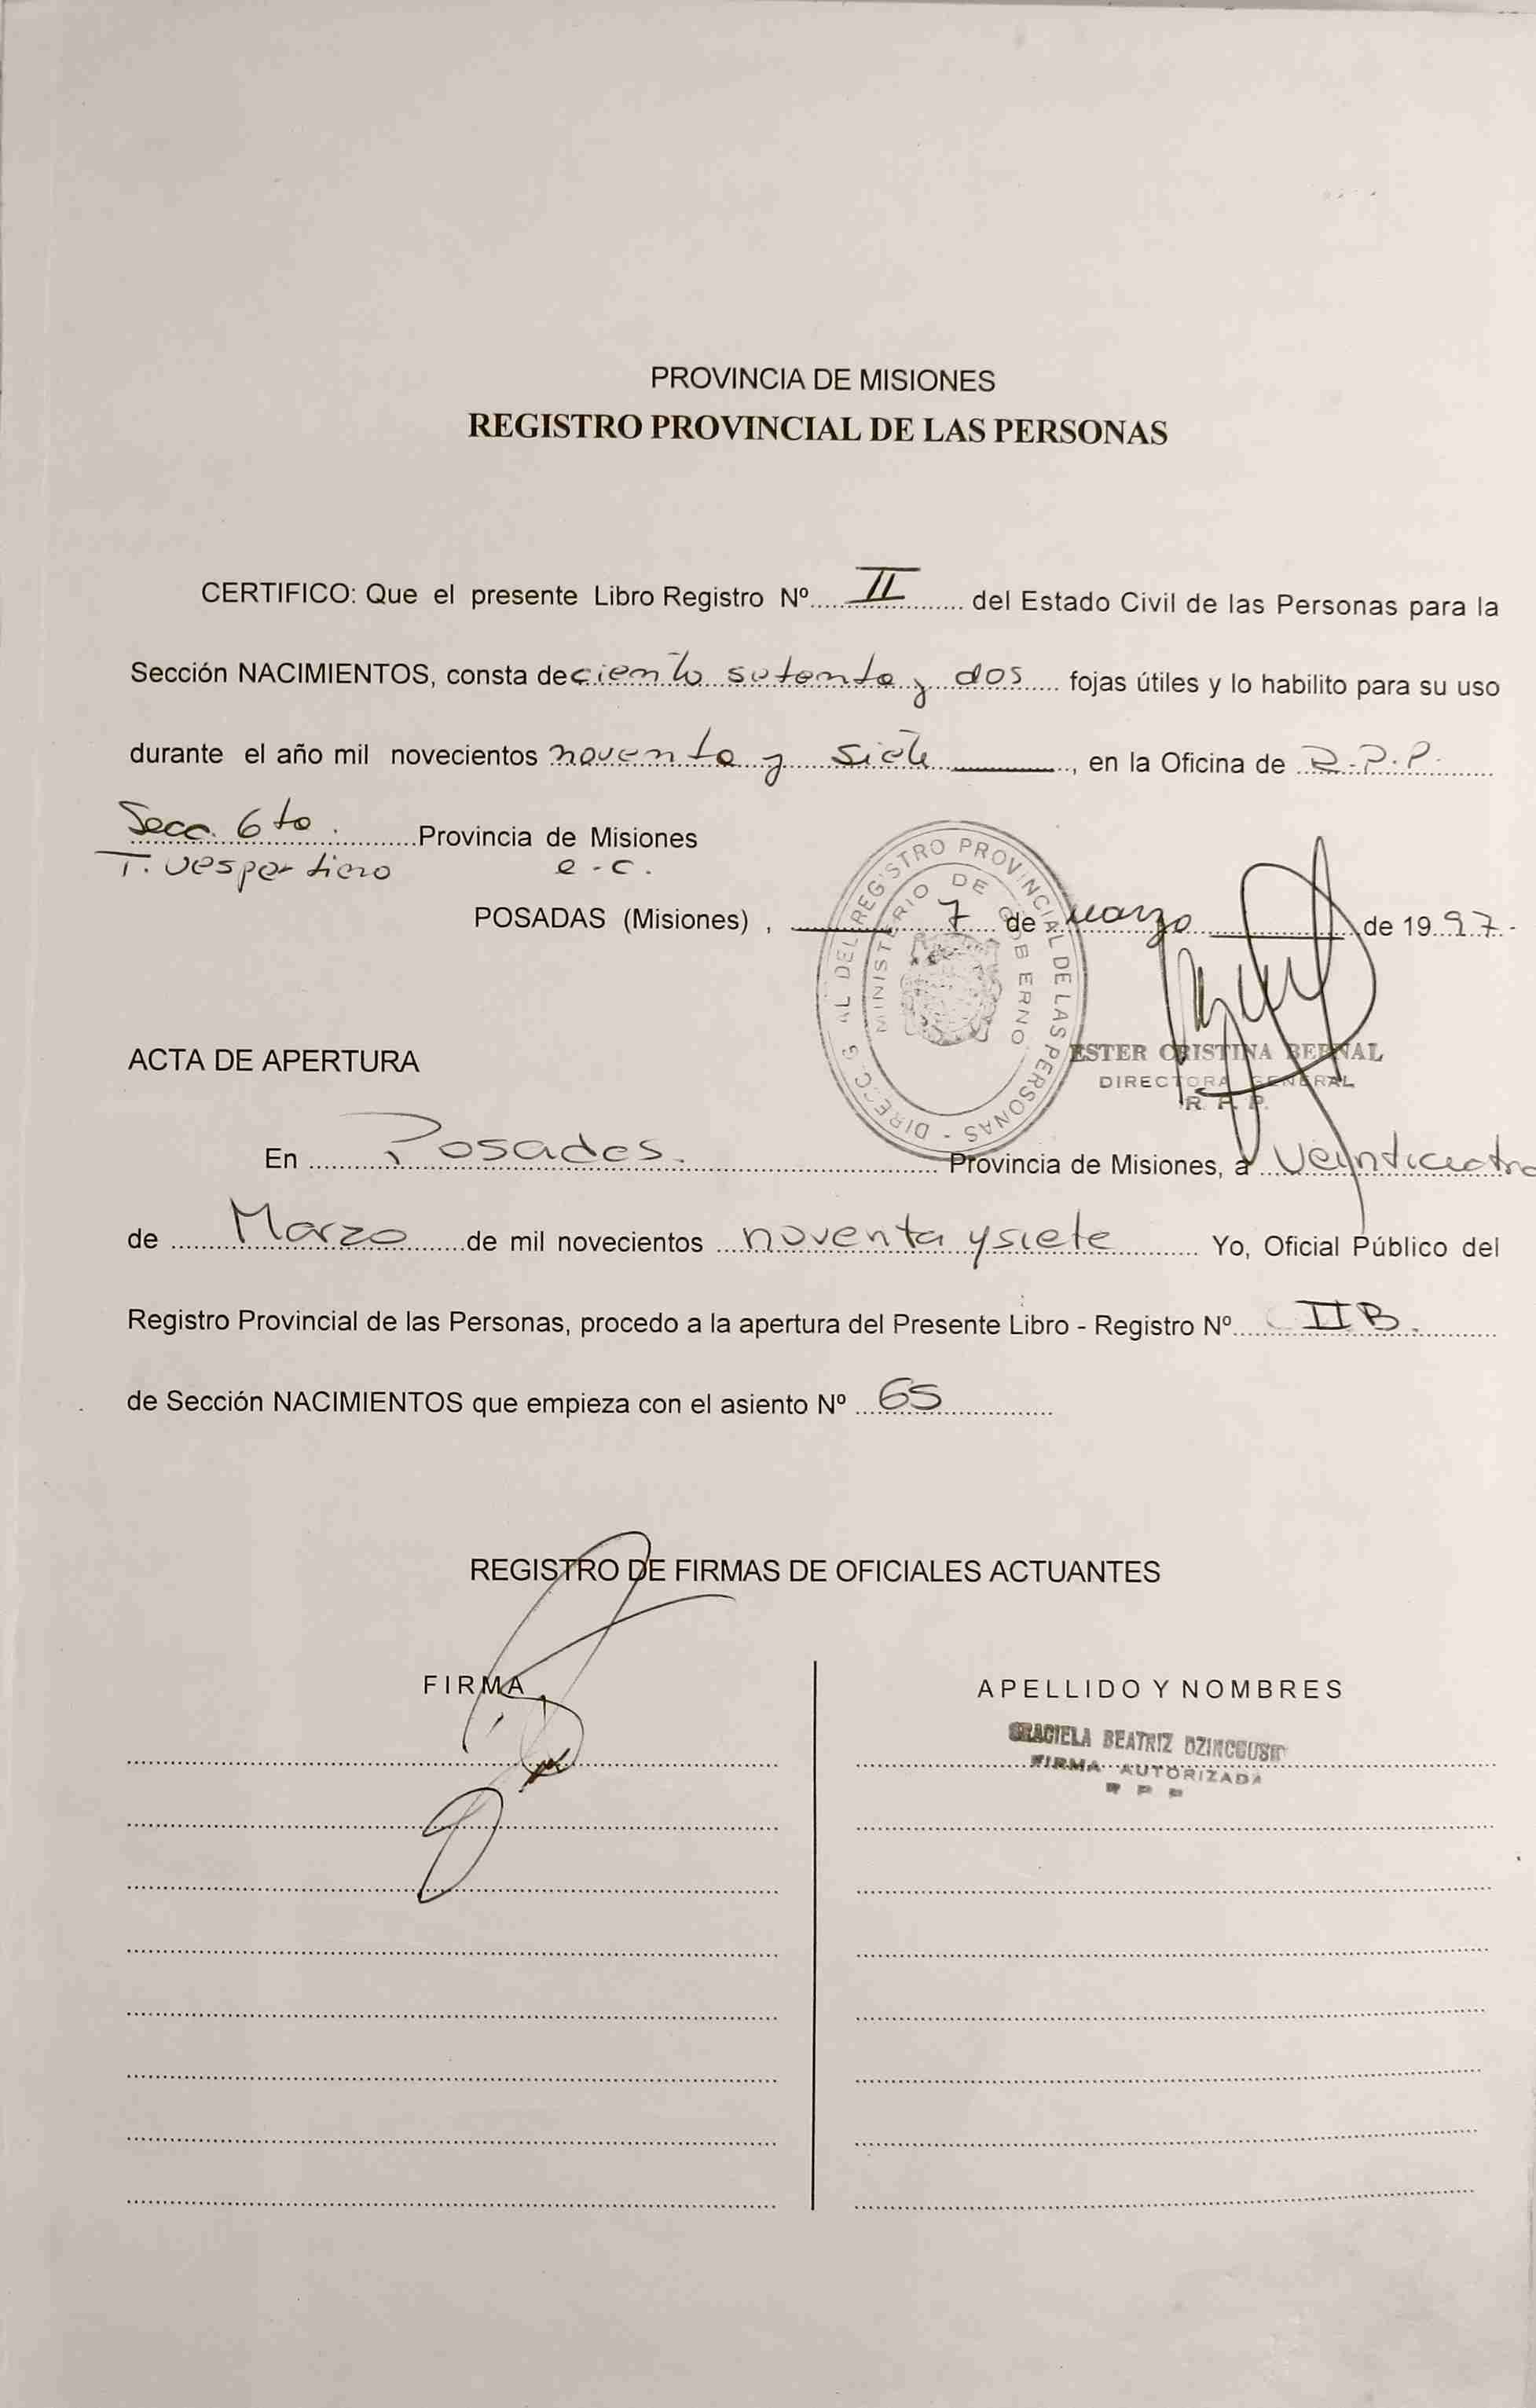 PROVINCIA DE MISIONES
REGISTRO PROVINCIAL DE LAS PERSONAS
CERTIFICO: Que el presente Libro Registro Nº II del Estado Civil de las Personas para la
Sección NACIMIENTOS, consta de ciento setenta y dos fojas útiles y lo habilito para su uso
durante el año mil novecientos noventa y siete, en la Oficina de R.P.P.
Secc. 6to. Provincia de Misiones
T. vespertino e.c.
POSADAS (Misiones), 7 de marzo de 1997.-
DIREC. GRAL DEL REGISTRO PROVINCIAL DE LAS PERSONAS -
MINISTERIO DE GOBIERNO
ESTER CRISTINA BERNAL
DIRECTORA GENERAL
R. P. P.
ACTA DE APERTURA
En Posadas. Provincia de Misiones, a veinticuatro
de Marzo de mil novecientos noventa y siete Yo, Oficial Público del
Registro Provincial de las Personas, procedo a la apertura del Presente Libro - Registro Nº IIB.
de Sección NACIMIENTOS que empieza con el asiento Nº 65
REGISTRO DE FIRMAS DE OFICIALES ACTUANTES
FIRMA APELLIDO Y NOMBRES
GRACIELA BEATRIZ
FIRMA AUTORIZADA
R P P